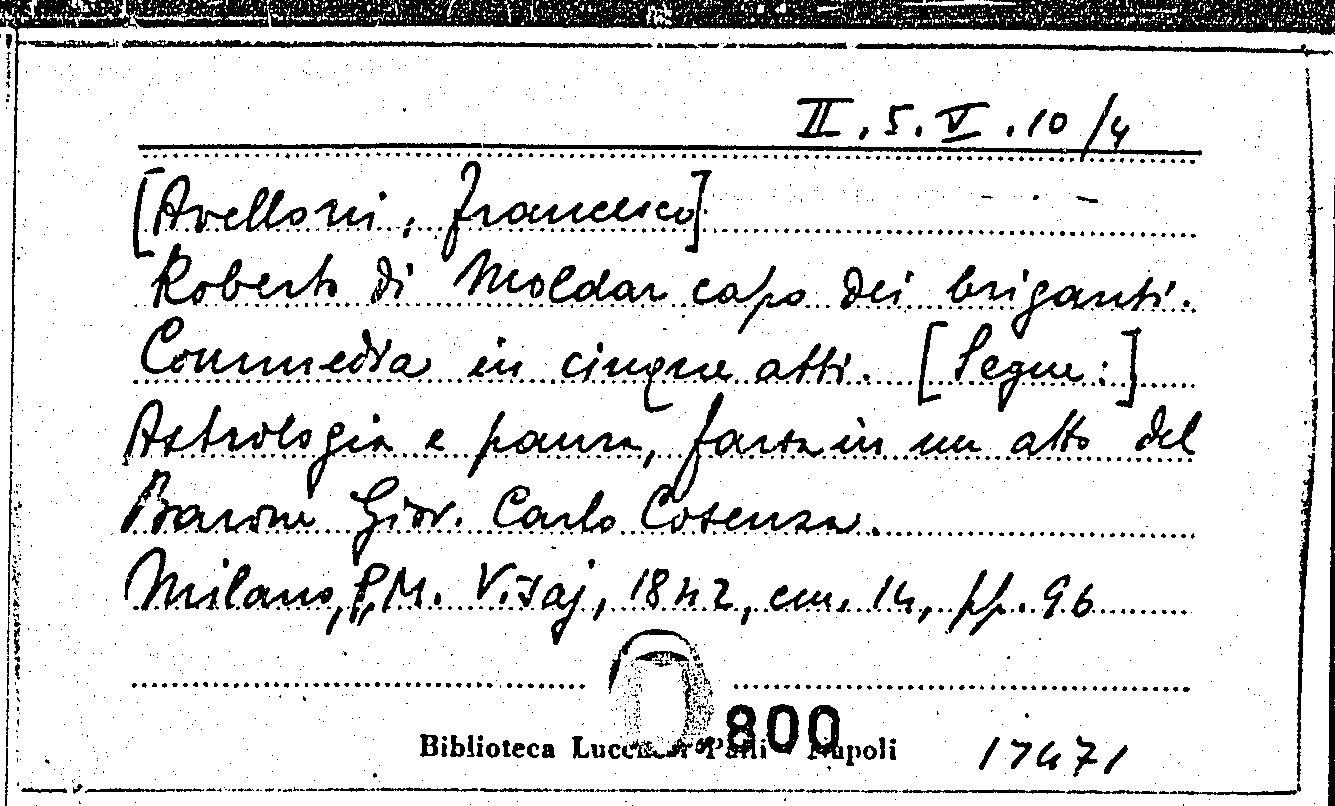 II.5.V.10/4
[Avelloni, Francesco]
Roberto di Moldar capo dei briganti.
Commedia in cinque atti. [Segue:]
Astrologia e paura, farsa in un atto del
Barone Giov. Carlo Cosenza.
Milano, P.M. Visaj, 1842, cm. 14, pp. 96
800
Biblioteca Lucchesi Palli Napoli
17471